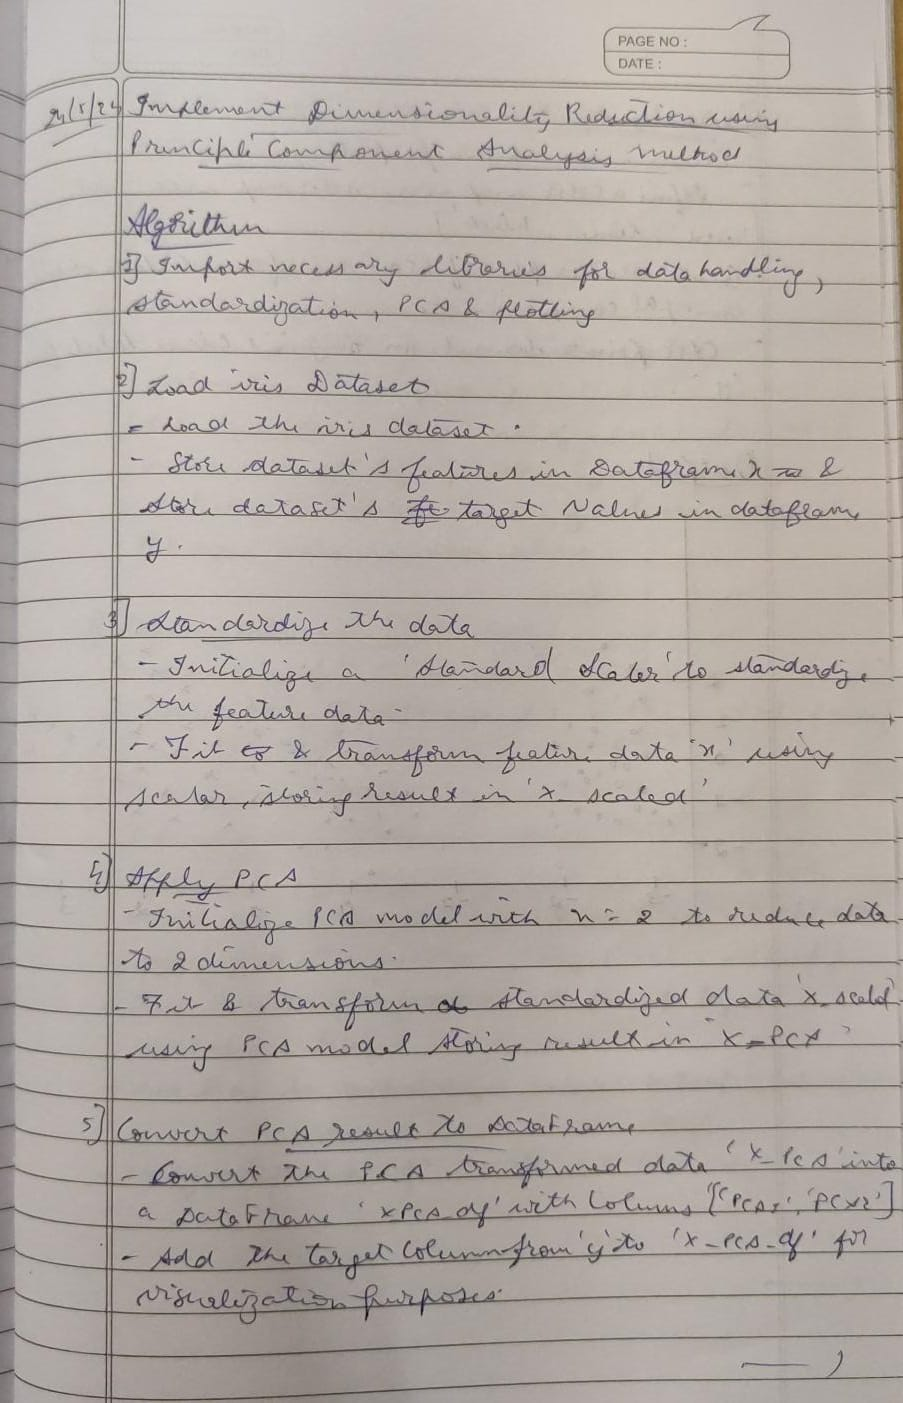 PAGE NO :
DATE :
Implement Dimensionality Reduction using
Principle Component Analysis method
Algorithm
1] Import necessary libraries for data handling,
standardization, PCA & plotting
2] Load iris Dataset
- Load the iris dataset.
- Store dataset's features in Dataframe x &
store dataset's target Values in dataframe
y.
3] Standardize the data
- Initialize a 'Standard Scaler' to standardize
the feature data
- Fit & transform feature data 'x' using
scalar, storing result in 'x_scaled'
4] Apply PCA
- Initialize PCA model with n = 2 to reduce data
to 2 dimensions.
- Fit & transform standardized data 'x_scaled'
using PCA model storing result in 'X_PCA'
5] Convert PCA result to DataFrame
- Convert the PCA transformed data 'X_PCA' into
a DataFrame 'xPCA_df' with Columns ['PCA1', 'PCA2']
- Add the target column from 'y' to 'x_PCA_df' for
visualization purposes.